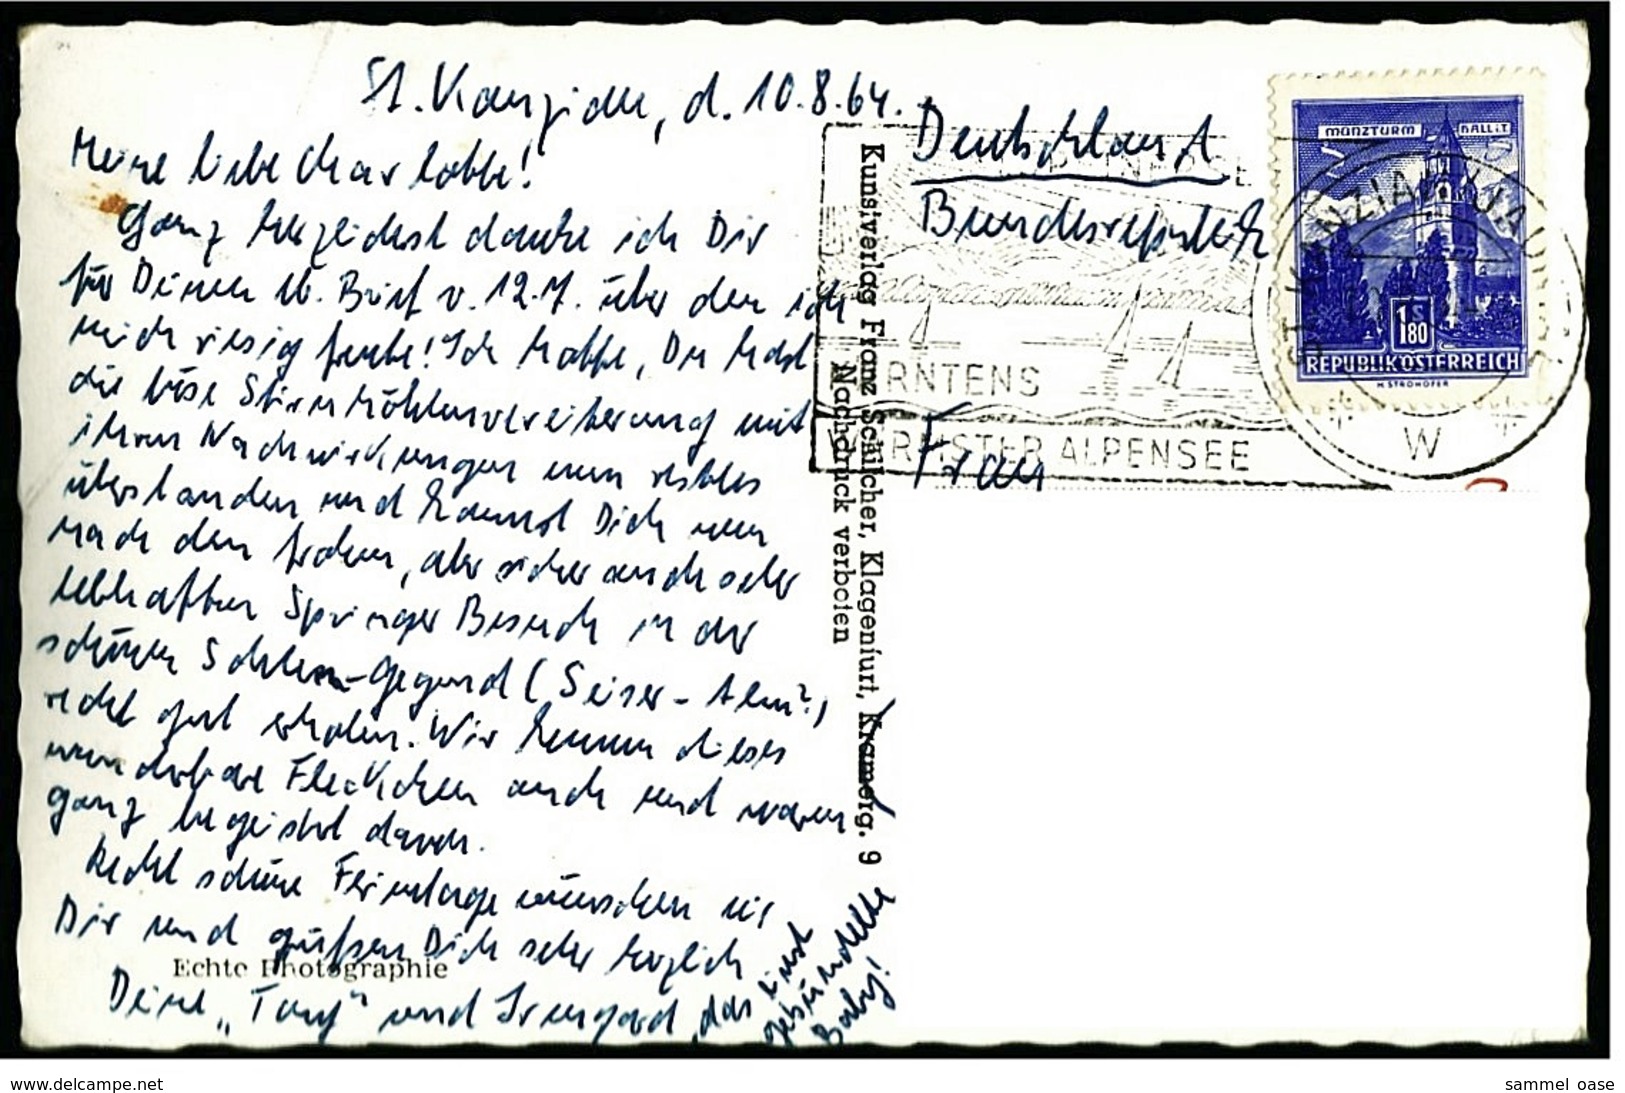 St. Kanzian, d. 10.8.64.
Meine liebe Charlotte!
Ganz herzlichst danke ich Dir
für Deinen lb. Brief v. 12.7. über den ich
mich riesig freute! Ich hoffe, Du hast
die böse Stirnhöhlenvereiterung mit
ihren Nachwirkungen nun restlos
überstanden und kannst Dich nun
nach dem frohen, aber sicher auch sehr
lebhaften Springer Besuch in der
schönen Schlern-Gegend (Seiser-Alm?)
recht gut erholen. Wir kennen dieses
wunderbare Fleckchen auch und waren
ganz begeistert davon.
Recht schöne Ferientage wünschen wir
Dir und grüßen Dich sehr herzlich
Deine "Tony" und Irmgard, das einst
gebündelte
Baby!
Echte Photographie
Kunstverlag Franz Schilcher, Klagenfurt, Kramerg. 9
Nachdruck verboten
Deutschland
Bundesrepublik
Frau
RNTENS
WÄRMSTER ALPENSEE
MÜNZTURM HALL i.T.
1 S 80
REPUBLIK ÖSTERREICH
H. STROHOFER
ST. KANZIAN
W
www.delcampe.net
sammel_oase